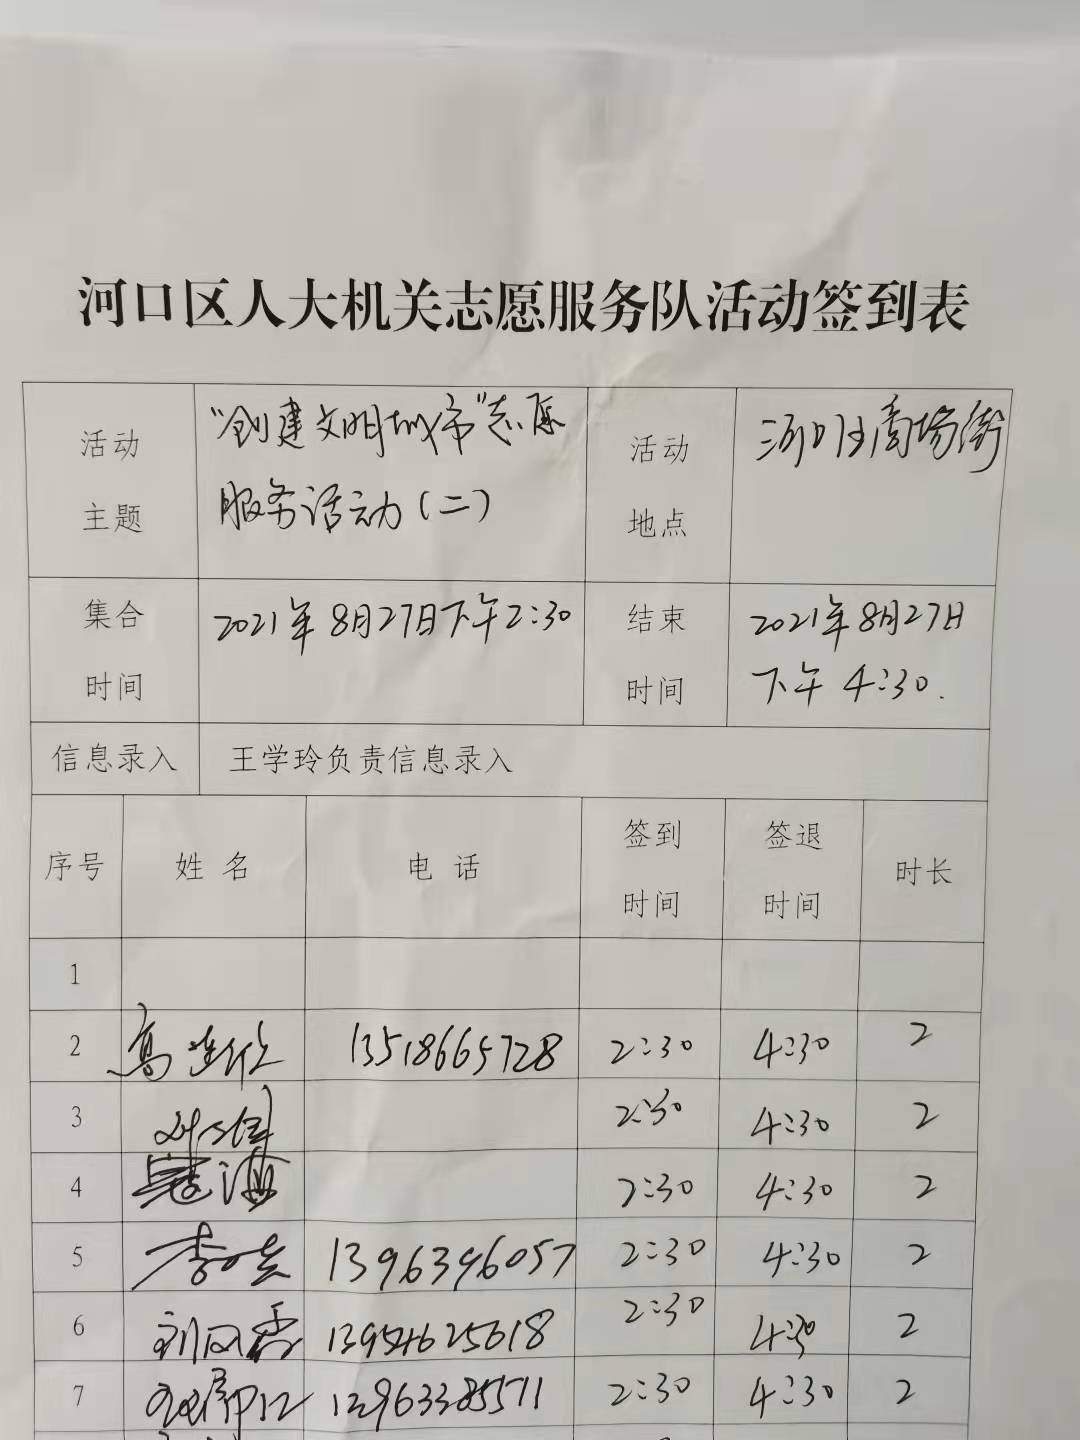 河口区人大机关志愿服务队活动签到表
活动主题 "创建文明城市"志愿服务活动(二) 活动地点 河口区商场街
集合时间 2021年8月27日下午2:30 结束时间 2021年8月27日下午4:30.
信息录入 王学玲负责信息录入
序号 姓名 电话 签到时间 签退时间 时长
1
2 13518665728 2:30 4:30 2
3 2:30 4:30 2
4 2:30 4:30 2
5 13963396057 2:30 4:30 2
6 13954625618 2:30 4:30 2
7 2:30 4:30 2